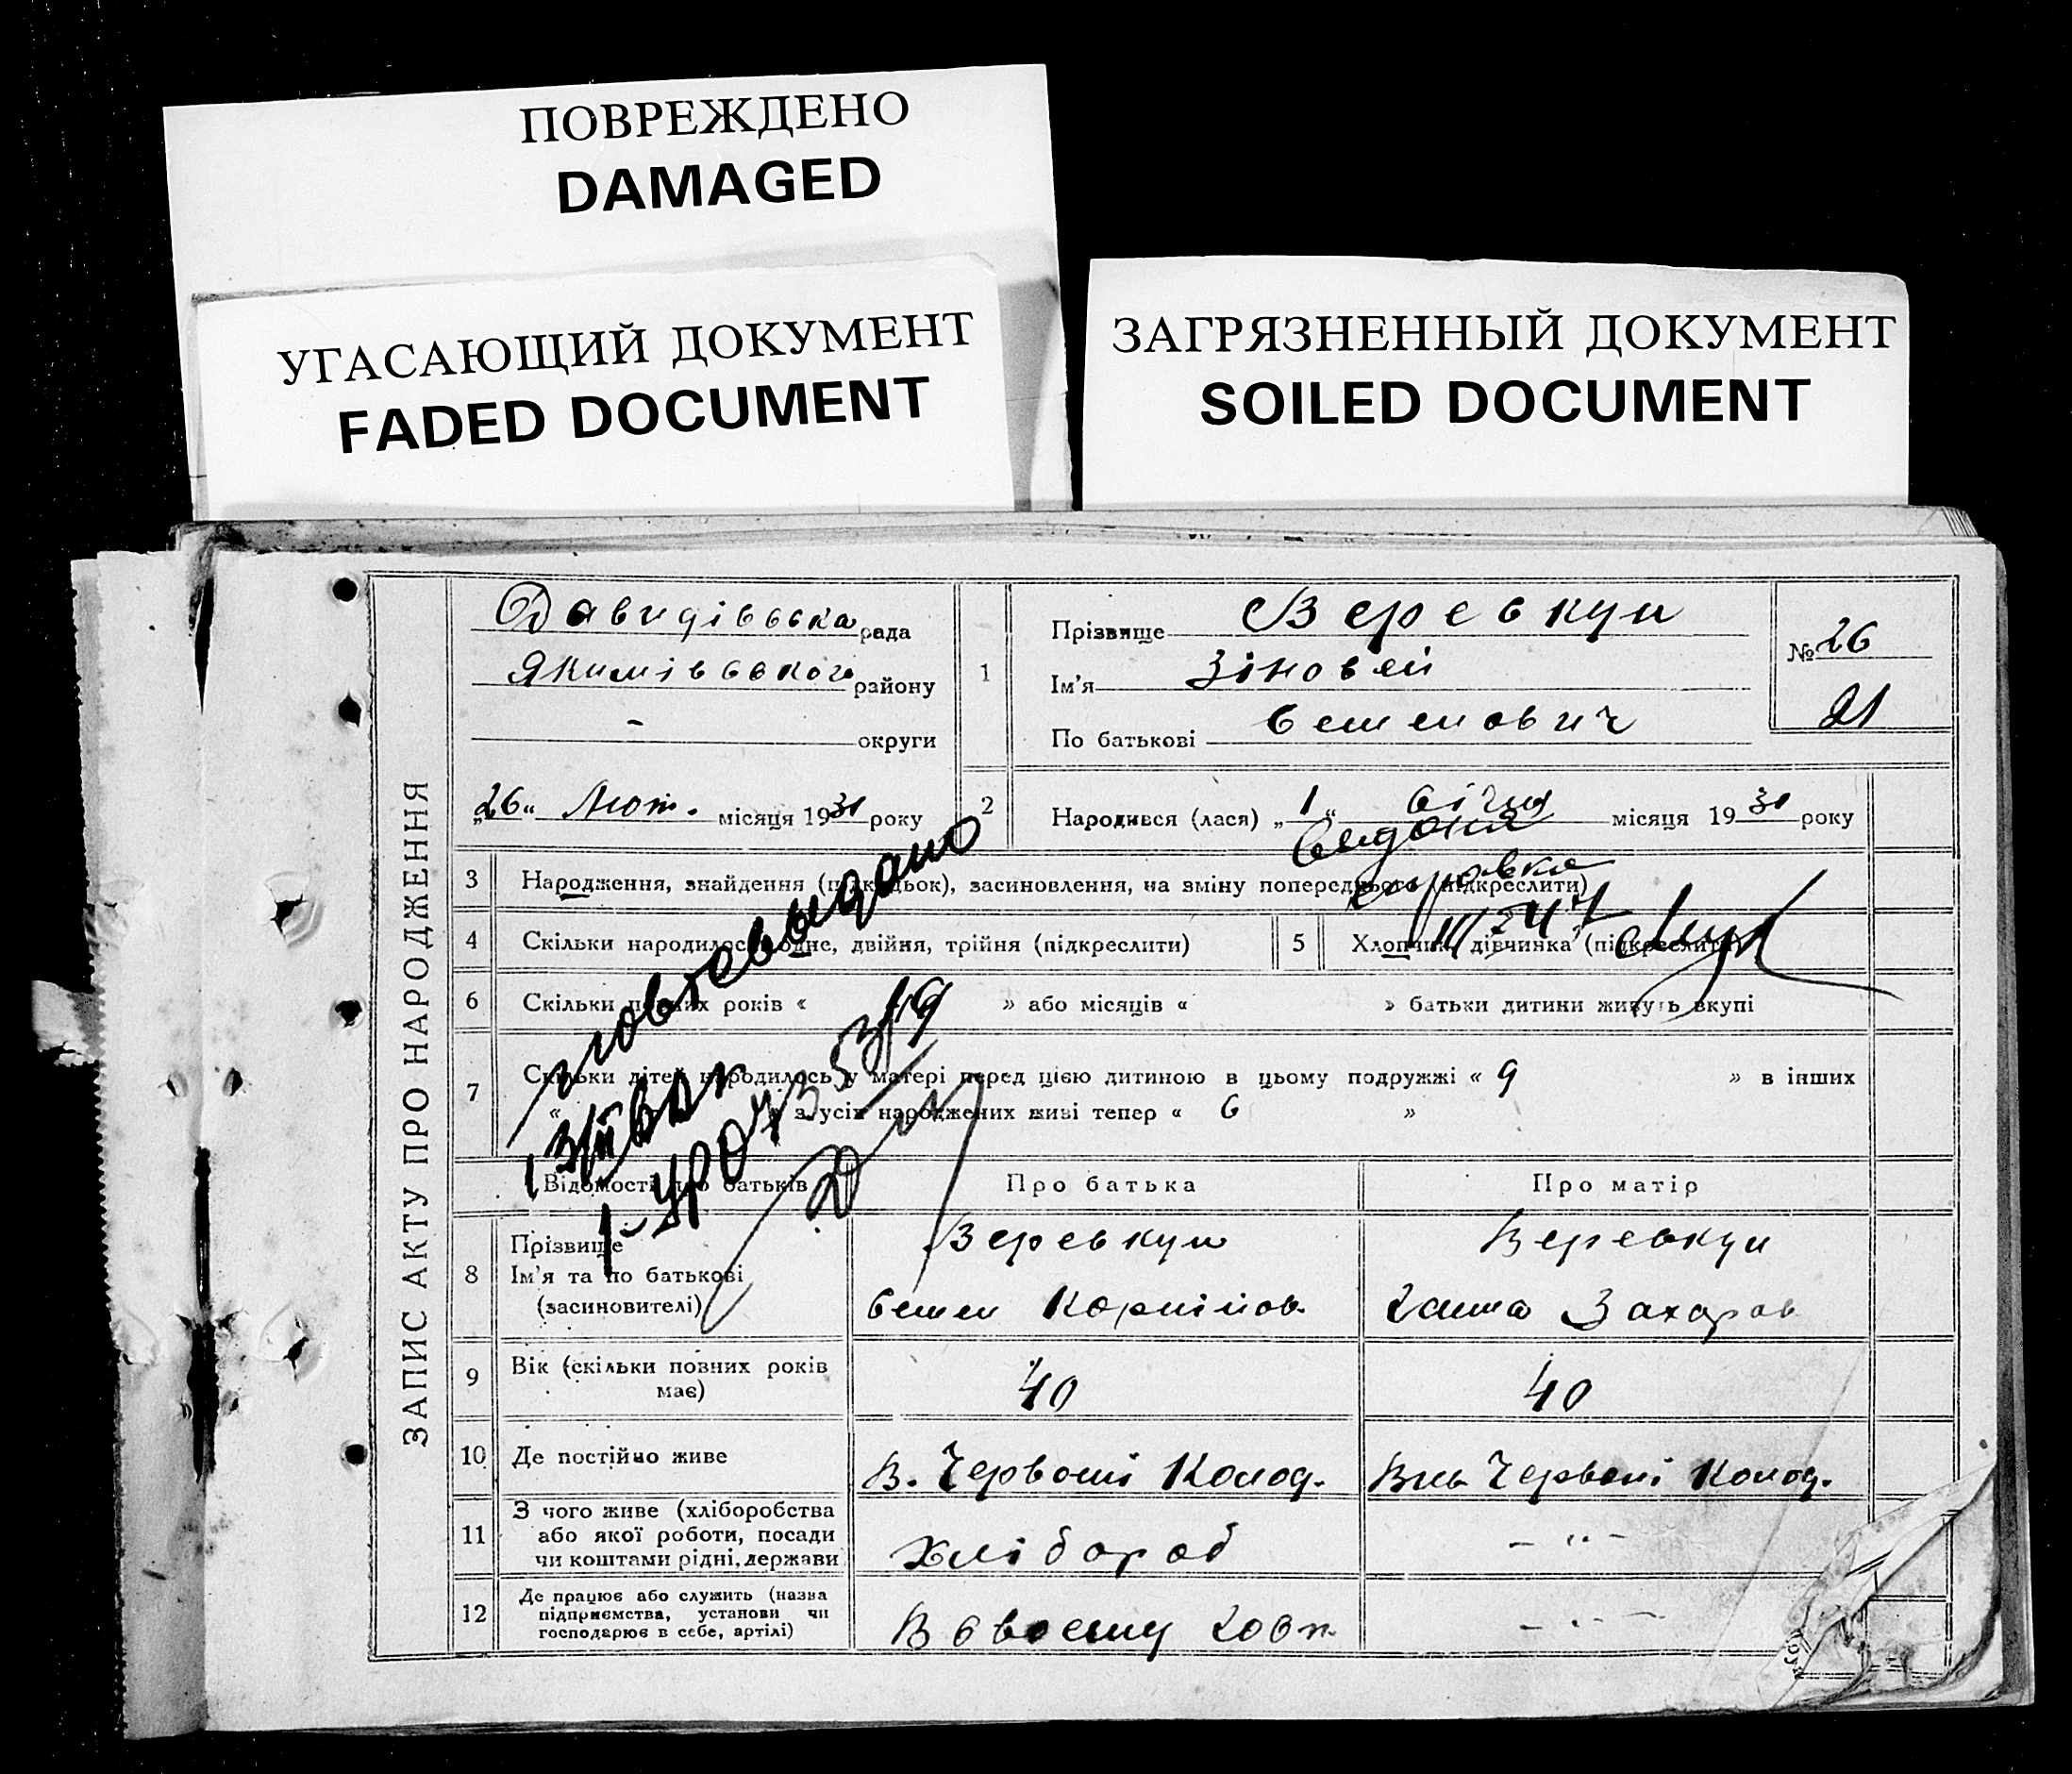 ПОВРЕЖДЕНО
DAMAGED
УГАСАЮЩИЙ ДОКУМЕНТ
FADED DOCUMENT
ЗАГРЯЗНЕННЫЙ ДОКУМЕНТ
SOILED DOCUMENT
ЗАПИС АКТУ ПРО НАРОДЖЕННЯ
Давидівська рада
Якимівського району
- округи
„26“ Лют. місяця 1931 року
1
Прізвище Веревкун
Ім'я Зіновей
По батькові Семенович
№ 26
21
2 Народився (лася) „1“ січня місяця 1931 року
3 Народження, знайдення (підкидьок), засиновлення, на зміну попереднього (підкреслити)
4 Скільки народилось: одне, двійня, трійня (підкреслити)
5 Хлопчик, дівчинка (підкреслити)
6 Скільки повних років « » або місяців « » батьки дитини живуть вкупі
7 Скільки дітей народилось у матері перед цією дитиною в цьому подружжі « 9 » в інших
« » з усіх народжених живі тепер « 6 »
Відомості про батьків
Про батька
Про матір
8 Прізвище
Ім'я та по батькові
(засиновителі)
Веревкун
Семен Корнійов.
Веревкун
Ганна Захаров
9 Вік (скільки повних років має)
40
40
10 Де постійно живе
В. Червоні Колод.
Червоні Колод.
11 З чого живе (хліборобства
або якої роботи, посади
чи коштами рідні, держави
Хлібороб
- " -
12 Де працює або служить (назва
підприємства, установи чи
господарює в себе, артілі)
В своєму госп.
- " -